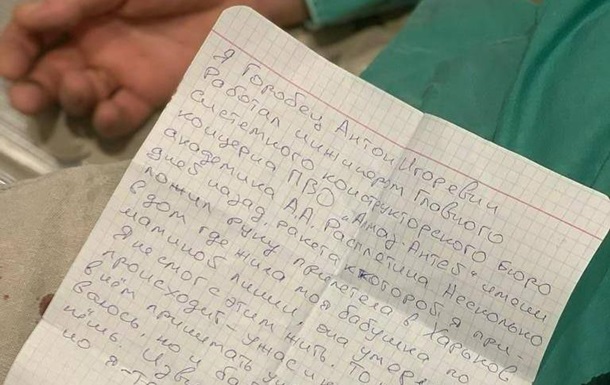 Я Горобец Антон Игоревич
Работал инжинером Главного
системного конструкторского бюро
концерна ПВО "Алмаз-Антей" имени
академика А.А. Расплетина Несколько
дней назад ракета которой я при-
ложил руку прилетела в Харьков
в дом где жила моя бабушка по
маминой линии, она умерла
Я не смог с этим жить. То
происходит - ужас и
в нём принимать у
ваюсь, но и ба
нёшь. Изви
но я